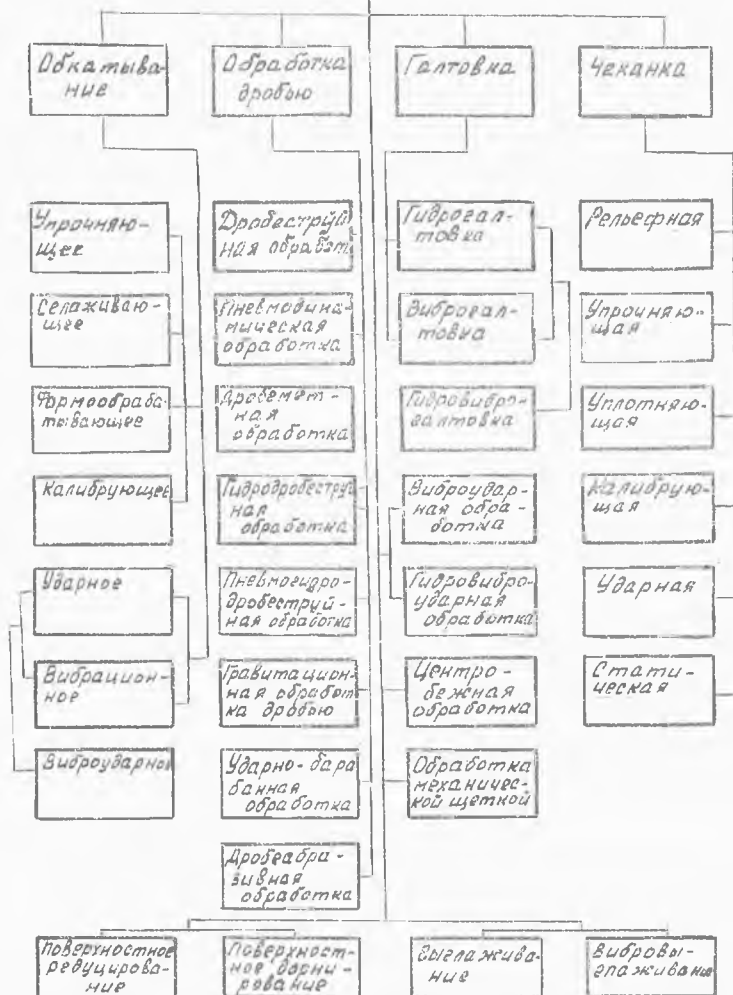 Обкатыва-
ние
Обработка
дробью
Галтовка
Чеканка
Упрочняю-
щее
Сглаживаю-
щее
Формообраба-
тывающее
Калибрующее
Ударное
Вибрацион-
ное
Виброударное
Дробеструй
ная обработ
Пневмодина-
мическая
обработка
Дробемет-
ная
обработка
Гидродробеструй
ная
обработка
Пневмогидро-
дробеструй-
ная обработка
Гравитацион-
ная обработ
ка дробью
Ударно-бара
банная
обработка
Дробеабра-
зивная
обработка
Гидрогал-
товка
Виброгал-
товка
Гидровибро-
галтовка
Виброудар-
ная обра-
ботка
Гидровибро-
ударная
обработка
Центро-
бежная
обработка
Обработка
механичес-
кой щеткой
Рельефная
Упрочняю-
щая
Уплотняю-
щая
Калибрую-
щая
Ударная
Стати-
ческая
Поверхностное
редуцирова-
ние
Поверхност-
ное дорни-
рование
Выглажива-
ние
Вибровы-
глаживани